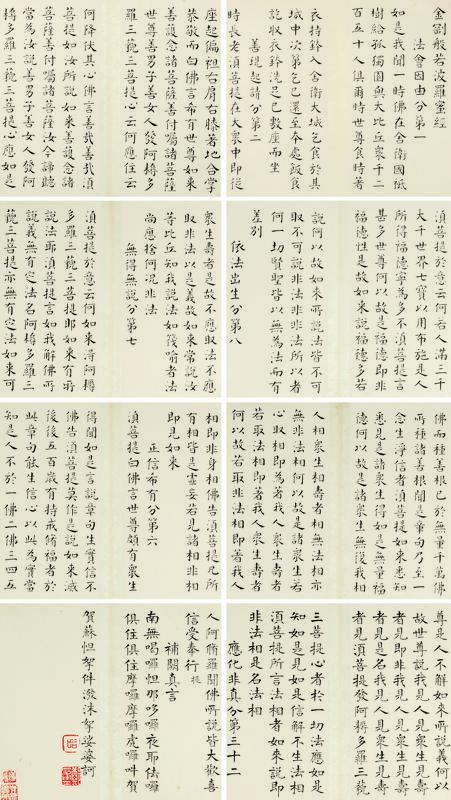 金剛般若波羅蜜經
法會因由分第一
如是我聞一時佛在舍衛國祇
樹給孤獨園與大比丘眾千二
百五十人俱爾時世尊食時著
衣持鉢入舍衛大城乞食於其
城中次第乞已還至本處飯食
訖收衣鉢洗足已敷座而坐
善現起請分第二
時長老須菩提在大眾中即從
座起偏袒右肩右膝著地合掌
恭敬而白佛言希有世尊如來
善護念諸菩薩善付囑諸菩薩
世尊善男子善女人發阿耨多
羅三藐三菩提心云何應住云
何降伏其心佛言善哉善哉須
菩提如汝所說如來善護念諸
菩薩善付囑諸菩薩汝今諦聽
當為汝說善男子善女人發阿
耨多羅三藐三菩提心應如是
須菩提於意云何若人滿三千
大千世界七寶以用布施是人
所得福德寧為多不須菩提言
甚多世尊何以故是福德即非
福德性是故如來說福德多若
說何以故如來所說法皆不可
取不可說非法非非法所以者
何一切賢聖皆以無為法而有
差別
依法出生分第八
眾生壽者是故不應取法不應
取非法以是義故如來常說汝
等比丘知我說法如筏喻者法
尚應捨何況非法
無得無說分第七
須菩提於意云何如來得阿耨
多羅三藐三菩提耶如來有所
說法耶須菩提言如我解佛所
說義無有定法名阿耨多羅三
藐三菩提亦無有定法如來可
佛而種善根已於無量千萬佛
所種諸善根聞是章句乃至一
念生淨信者須菩提如來悉知
悉見是諸眾生得如是無量福
德何以故是諸眾生無復我相
人相眾生相壽者相無法相亦
無非法相何以故是諸眾生若
心取相即為著我人眾生壽者
若取法相即著我人眾生壽者
何以故若取非法相即著我人
相即非身相佛告須菩提凡所
有相皆是虛妄若見諸相非相
即見如來
正信希有分第六
須菩提白佛言世尊頗有眾生
得聞如是言說章句生實信不
佛告須菩提莫作是說如來滅
後後五百歲有持戒修福者於
此章句能生信心以此為實當
知是人不於一佛二佛三四五
尊是人不解如來所說義何以
故世尊說我見人見眾生見壽
者見即非我見人見眾生見壽
者見是名我見人見眾生見壽
者見須菩提發阿耨多羅三藐
三菩提心者於一切法應如是
知如是見如是信解不生法相
須菩提所言法相者如來說即
非法相是名法相
應化非真分第三十二
人阿脩羅聞佛所說皆大歡喜
信受奉行
補闕真言
南無喝囉怛那哆囉夜耶佉囉
俱住俱住摩囉摩囉虎囉吽賀
賀蘇怛拏件潑沫拏娑婆訶